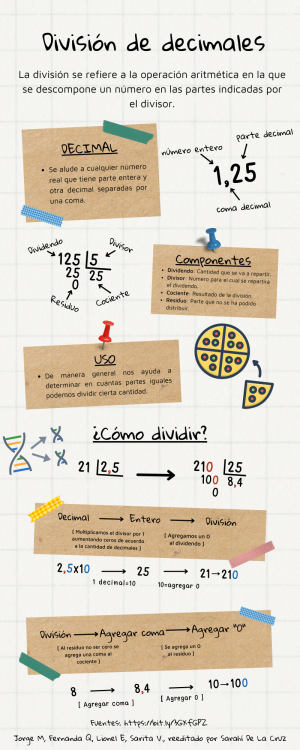 División de decimales
La división se refiere a la operación aritmética en la que
se descompone un número en las partes indicadas por
el divisor.
DECIMAL
• Se alude a cualquier número
real que tiene parte entera y
otra decimal separadas por
una coma.
parte decimal
número entero
1,25
coma decimal
Dividendo
Divisor
125 5
25 25
0
Residuo
Cociente
Componentes
• Dividendo: Cantidad que se va a repartir.
• Divisor: Número para el cual se repartira
el dividendo.
• Cociente: Resultado de la división.
• Residuo: Parte que no se ha podido
distribuir.
USO
• De manera general nos ayuda a
determinar en cuántas partes iguales
podemos dividir cierta cantidad.
¿Cómo dividir?
21 2,5
210 25
100 8,4
0
Decimal Entero División
[ Multiplicamos el divisor por 1
aumentando ceros de acuerdo
a la cantidad de decimales ]
[ Agregamos un 0
al dividendo ]
2,5x10 25 21→210
1 decimal=10 10=agregar 0
División Agregar coma Agregar "0"
[ Al residuo no ser cero se
agrega una coma al
cociente ]
[ Se agrega un 0
al residuo ]
8 8,4 10→100
[ Agregar coma ] [ Agregar 0 ]
Jorge M, Fernanda Q, Lionel E, Sarita V., reeditado por Sarahi De La Cruz